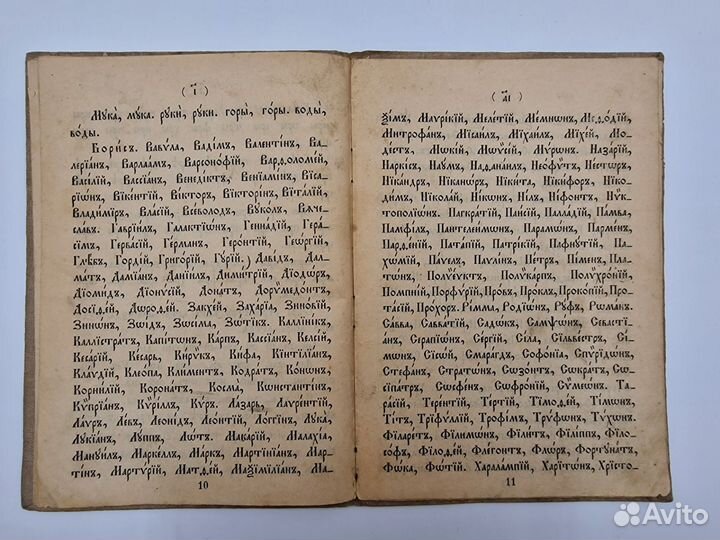 ( і҃ )
Мꙋка̀, мꙋ́ка. рꙋкѝ, рꙋ́ки. горы̀, го́ры. воды̀,
во́ды.
Бори́съ. Вавѵ́ла, Вади́мъ, Валенті́нъ, Ва-
леріа́нъ, Варлаа́мъ, Варсоно́фій, Варѳоломе́й,
Васі́лій, Вассіа́нъ, Венеді́ктъ, Веніамі́нъ, Вісса-
ріѡ́нъ, Віке́нтій, Ві́кторъ, Вікторі́нъ, Віта́лій,
Влади́міръ, Вла́сій, Все́володъ, Вꙋко́лъ, Вѧче-
сла́въ. Гавріи́лъ, Галактіѡ́нъ, Генна́дій, Гера́-
сімъ, Герва́сій, Ге́рманъ, Геро́нтій, Геѡ́ргій,
Глѣ́бъ, Горді́й, Григо́рій, Гꙋ́рій. Даві́дъ, Дал-
ма́тъ, Даміа́нъ, Данїи́лъ, Дими́трій, Діодѡ́ръ,
Діоми́дъ, Діонѵ́сій, Дона́тъ, Дорѷмедо́нтъ,
Досіѳе́й, Дѡроѳе́й. Закхе́й, Заха́рія, Зино́вій,
Зинѡ́нъ, Зѡі́дъ, Зѡсі́ма, Зѡ́тікъ. Каллінı́къ,
Каллістра́тъ, Капі́тѡнъ, Ка́рпъ, Кассіа́нъ, Ке́лсій,
Кеса́рій, Ке́сарь, Ки́рꙋкъ, Ки́фа, Кїнтіліа́нъ,
Кла́ѵдій, Клео́па, Кли́ментъ, Кодра́тъ, Ко́нѡнъ,
Корни́лій, Корона́тъ, Косма̀, Кѡнстанті́нъ,
Кѷпріа́нъ, Кѷри́ллъ, Кѵ́ръ. Ла́зарь, Лаѵре́нтій,
Ла́ѵръ, Ле́въ, Леоні́дъ, Лео́нтій, Ло́ггинъ, Лꙋка̀,
Лꙋкіа́нъ, Лꙋ́ппъ, Лѡ́тъ. Мака́рій, Малахі́а,
Манꙋи́лъ, Марке́ллъ, Ма́ркъ, Мартініа́нъ, Мар-
ті́нъ, Мартѵ́рій, Матѳе́й, Маѯіміліа́нъ, Ма-
10
( а҃і )
ѯі́мъ, Маѵрі́кій, Меле́тій, Ме́мнѡнъ, Меѳо́дій,
Митрофа́нъ, Місаи́лъ, Міхаи́лъ, Міхе́й, Мо-
де́стъ, Мѡ́кій, Мѡѷсе́й, Мѵ́рѡнъ. Наза́рій,
Наркі́съ, Наꙋ́мъ, Наѳанаи́лъ, Неофѵ́тъ, Не́стѡръ,
Ніка́ндръ, Ніканѡ́ръ, Нікі́та, Ники́форъ, Ніко-
ди́мъ, Нікола́й, Ні́кѡнъ, Ні́лъ, Ні́фонтъ, Нѵ́кт-
ополіѡ́нъ. Пагкра́тій, Паı́сій, Палла́дій, Па́мва,
Памфи́лъ, Пантелеи́мѡнъ, Парамѡ́нъ, Парме́нъ,
Парѳе́ній, Пата́пій, Патрі́кій, Пафнꙋ́тій, Па-
хѡ́мій, Па́ѵелъ, Паѵлі́нъ, Пе́тръ, Пі́менъ, Пла-
тѡ́нъ, Полѷе́ѵктъ, Полѷка́рпъ, Полѷхро́ній,
Помпі́ній, Порфѵ́рій, Про́въ, Про́клъ, Проко́пій, Про-
та́сій, Про́хоръ. Рі́мма, Родіѡ́нъ, Рꙋ́фъ, Рѡма́нъ.
Са́вва, Савва́тій, Садѡ́къ, Самѱѡ́нъ, Севастіа́-
нъ, Серапіѡ́нъ, Се́ргій, Сі́ла, Сілве́стръ, Сі-
мѡнъ, Сісѡ́й, Смара́гдъ, Софо́нія, Спѷрі́дѡнъ,
Стефа́нъ, Стра́тѡнъ, Сѡзо́нтъ, Сѡкра́тъ, Сѡ-
сіпа́тръ, Сѡсѳе́нъ, Сѡфро́ній, Сѷмеѡ́нъ. Та-
ра́сій, Тере́нтій, Те́ртій, Тімоѳе́й, Ті́мѡнъ,
Ті́тъ, Тріфѵ́ллій, Трофі́мъ, Трѵ́фѡнъ, Тѵ́хѡнъ.
Філаре́тъ, Філи́мѡнъ, Філи́тъ, Філі́ппъ, Філо-
ѳе́й, Флего́нтъ, Флѡ́ръ, Фортꙋна́тъ,
Фѡ́ка, Фѡ́тій. Харала́мпій, Харі́тѡнъ, Хрісто-
11
Avito